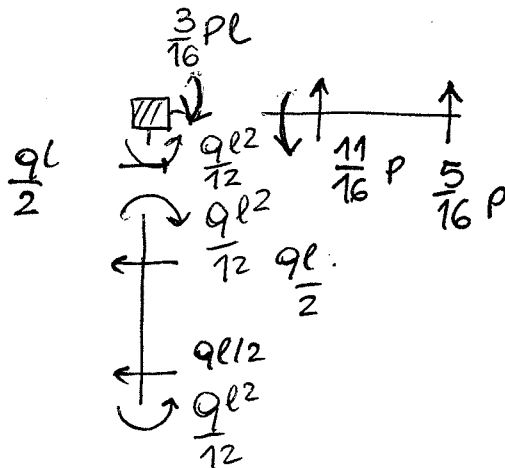 3/16 Pl
ql/2
ql²/12
11/16 P
5/16 P
ql²/12
ql/2
ql/2
ql²/12